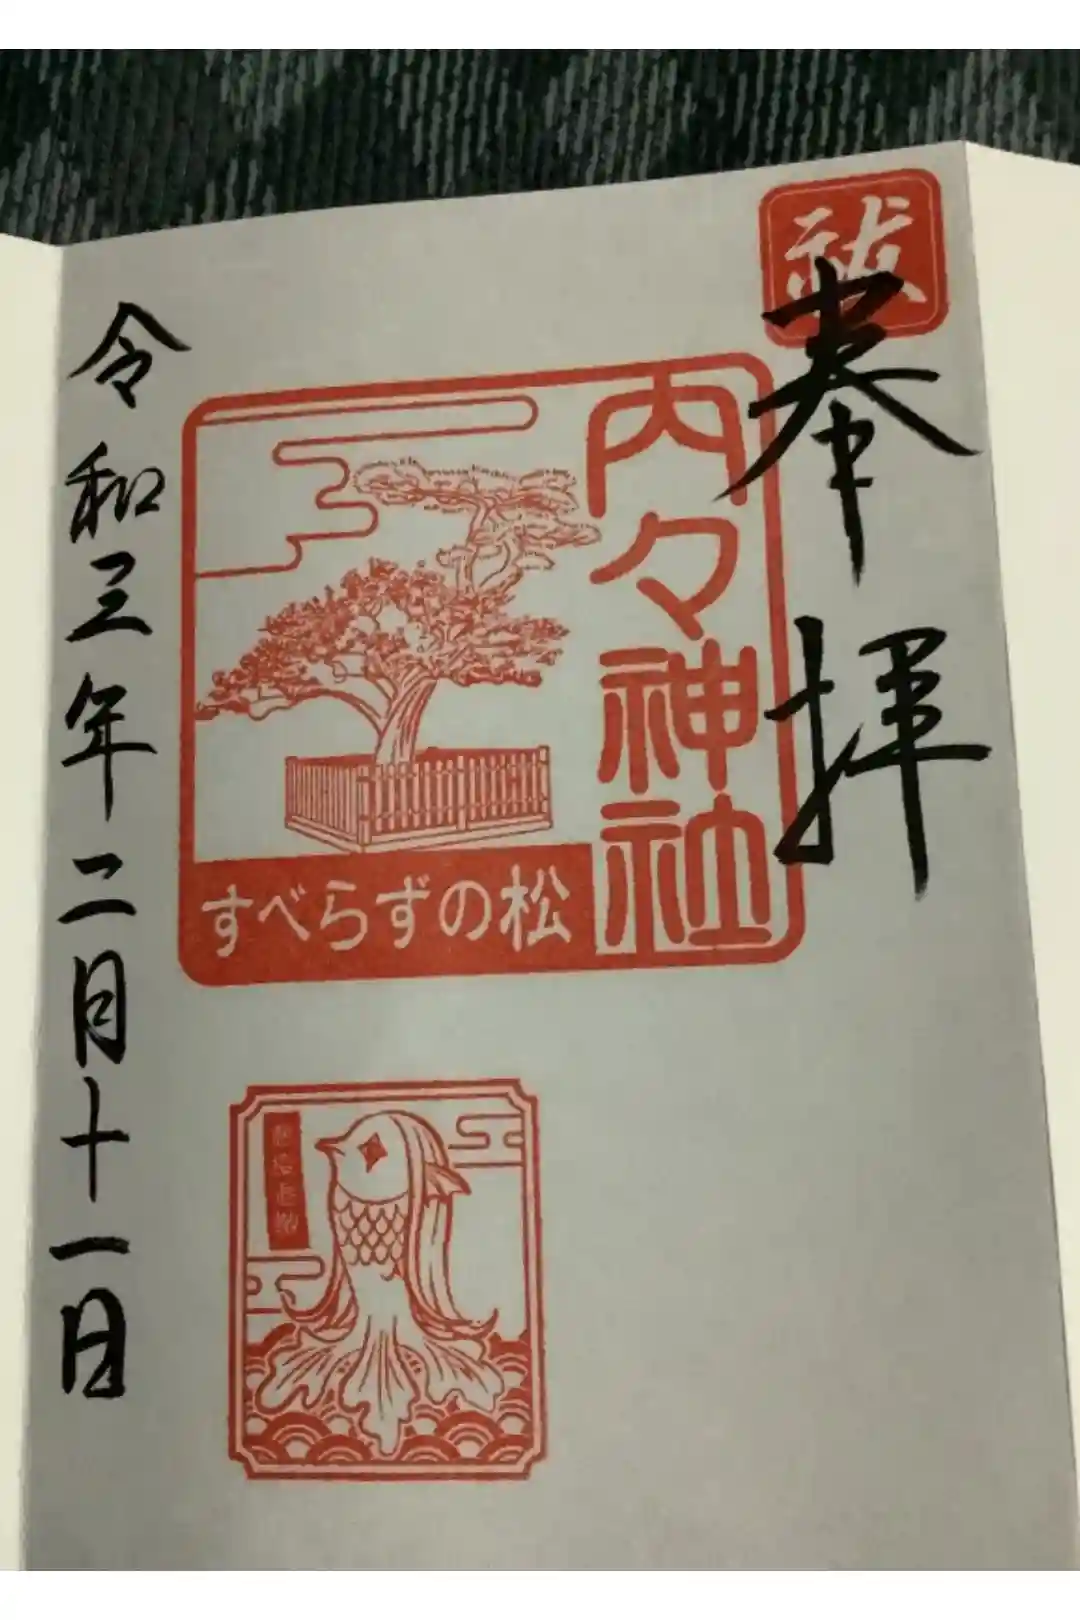 祓
奉拝
内々神社
すべらずの松
令和三年二月十一日